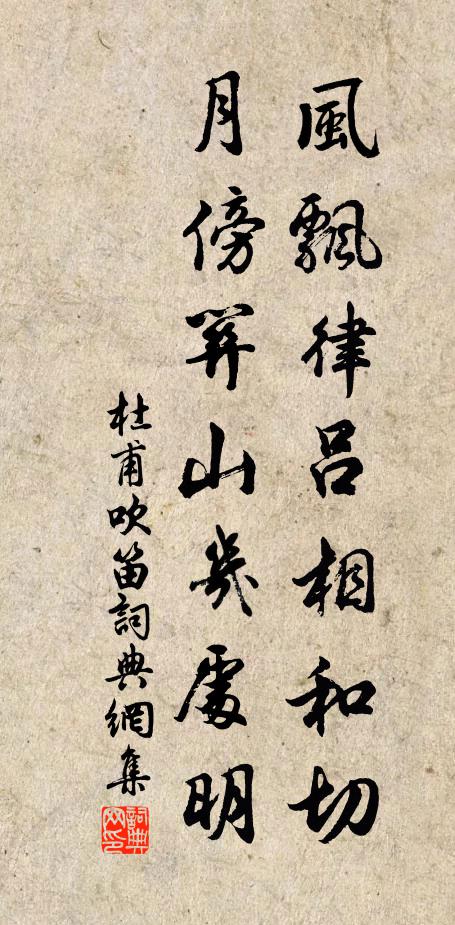 風飄律呂相和切
月傍關山幾處明
杜甫吹笛詞典網集
詞典網印